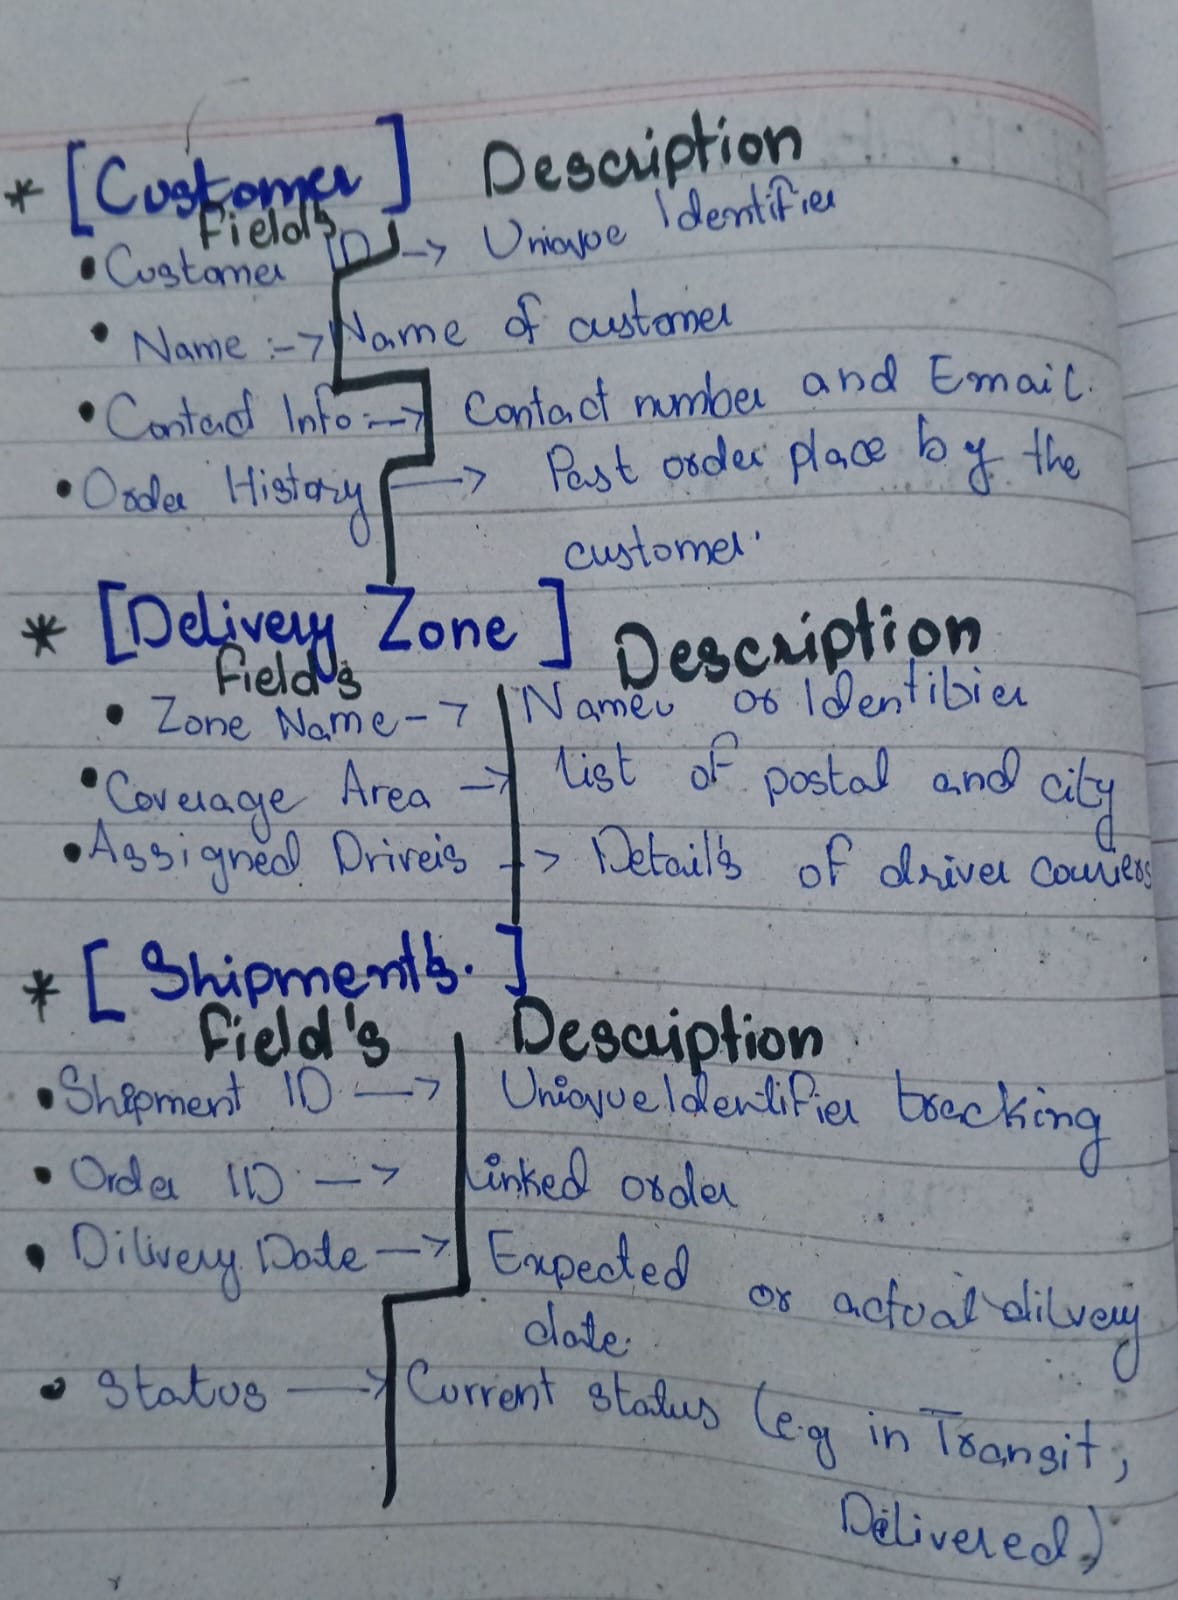 * [Customer] Description
Fields
• Customer ID --> Unique Identifier
• Name :--> Name of customer
• Contact Info :--> Contact number and Email.
• Order History --> Past order place by the
customer.
* [Delivery Zone] Description
Field's
• Zone Name --> Name or Identifier
• Coverage Area --> List of postal and city
• Assigned Drivers --> Detail's of driver couriers
* [Shipment's.]
Field's Description
• Shipment ID --> Unique Identifier tracking
• Order ID --> Linked order
• Dilivery Date --> Expected or actual dilvery
date.
• Status --> Current status (e.g in Transit,
Delivered)